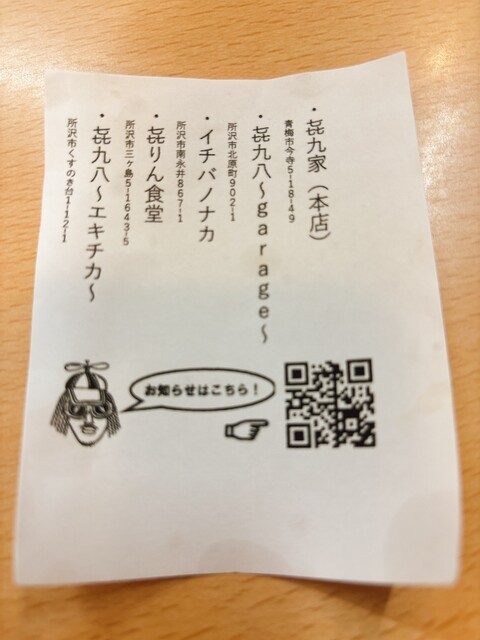 ・㐂九家（本店）
青梅市今寺5-18-49
・㐂九八〜garage〜
所沢市北原町902-1
・イチバノナカ
所沢市南永井867-1
・㐂りん食堂
所沢市三ヶ島5-1643-5
・㐂九八〜エキチカ〜
所沢市くすのき台1-12-1
お知らせはこちら！